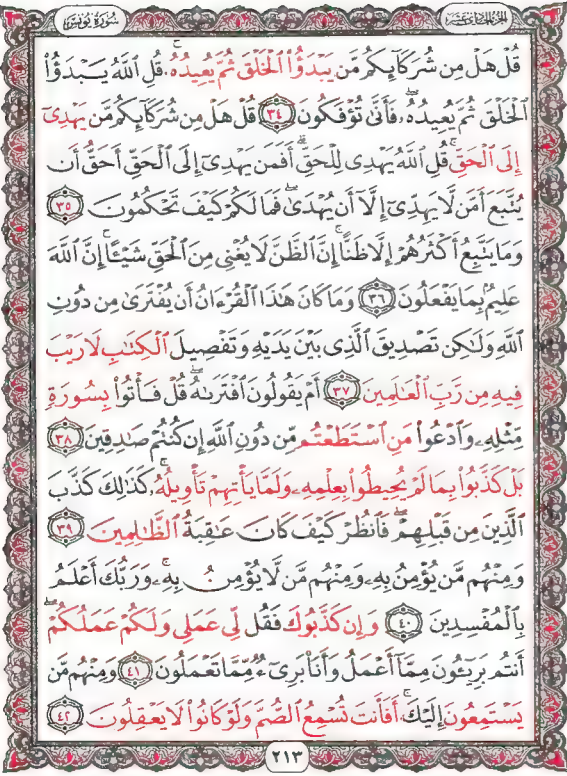 سُورَةُ يُونُسَ
الجُزءُ الحَادِي عَشَرَ
قُلْ هَلْ مِن شُرَكَآئِكُم مَّن يَبْدَؤُاْ ٱلْخَلْقَ ثُمَّ يُعِيدُهُۥۚ قُلِ ٱللَّهُ يَبْدَؤُاْ
ٱلْخَلْقَ ثُمَّ يُعِيدُهُۥۖ فَأَنَّىٰ تُؤْفَكُونَ ٣٤ قُلْ هَلْ مِن شُرَكَآئِكُم مَّن يَهْدِىٓ
إِلَى ٱلْحَقِّۚ قُلِ ٱللَّهُ يَهْدِى لِلْحَقِّۗ أَفَمَن يَهْدِىٓ إِلَى ٱلْحَقِّ أَحَقُّ أَن
يُتَّبَعَ أَمَّن لَّا يَهِدِّىٓ إِلَّآ أَن يُهْدَىٰۖ فَمَا لَكُمْ كَيْفَ تَحْكُمُونَ ٣٥
وَمَا يَتَّبِعُ أَكْثَرُهُمْ إِلَّا ظَنًّاۚ إِنَّ ٱلظَّنَّ لَا يُغْنِى مِنَ ٱلْحَقِّ شَيْـًٔاۚ إِنَّ ٱللَّهَ
عَلِيمٌۢ بِمَا يَفْعَلُونَ ٣٦ وَمَا كَانَ هَٰذَا ٱلْقُرْءَانُ أَن يُفْتَرَىٰ مِن دُونِ
ٱللَّهِ وَلَٰكِن تَصْدِيقَ ٱلَّذِى بَيْنَ يَدَيْهِ وَتَفْصِيلَ ٱلْكِتَٰبِ لَا رَيْبَ
فِيهِ مِن رَّبِّ ٱلْعَٰلَمِينَ ٣٧ أَمْ يَقُولُونَ ٱفْتَرَىٰهُۖ قُلْ فَأْتُواْ بِسُورَةٍ
مِّثْلِهِۦ وَٱدْعُواْ مَنِ ٱسْتَطَعْتُم مِّن دُونِ ٱللَّهِ إِن كُنتُمْ صَٰدِقِينَ ٣٨
بَلْ كَذَّبُواْ بِمَا لَمْ يُحِيطُواْ بِعِلْمِهِۦ وَلَمَّا يَأْتِهِمْ تَأْوِيلُهُۥۚ كَذَٰلِكَ كَذَّبَ
ٱلَّذِينَ مِن قَبْلِهِمْۖ فَٱنظُرْ كَيْفَ كَانَ عَٰقِبَةُ ٱلظَّٰلِمِينَ ٣٩
وَمِنْهُم مَّن يُؤْمِنُ بِهِۦ وَمِنْهُم مَّن لَّا يُؤْمِنُ بِهِۦۚ وَرَبُّكَ أَعْلَمُ
بِٱلْمُفْسِدِينَ ٤٠ وَإِن كَذَّبُوكَ فَقُل لِّى عَمَلِى وَلَكُمْ عَمَلُكُمْۖ
أَنتُم بَرِيٓـُٔونَ مِمَّآ أَعْمَلُ وَأَنَا۠ بَرِىٓءٌ مِّمَّا تَعْمَلُونَ ٤١ وَمِنْهُم مَّن
يَسْتَمِعُونَ إِلَيْكَۚ أَفَأَنتَ تُسْمِعُ ٱلصُّمَّ وَلَوْ كَانُواْ لَا يَعْقِلُونَ ٤٢
٢١٣